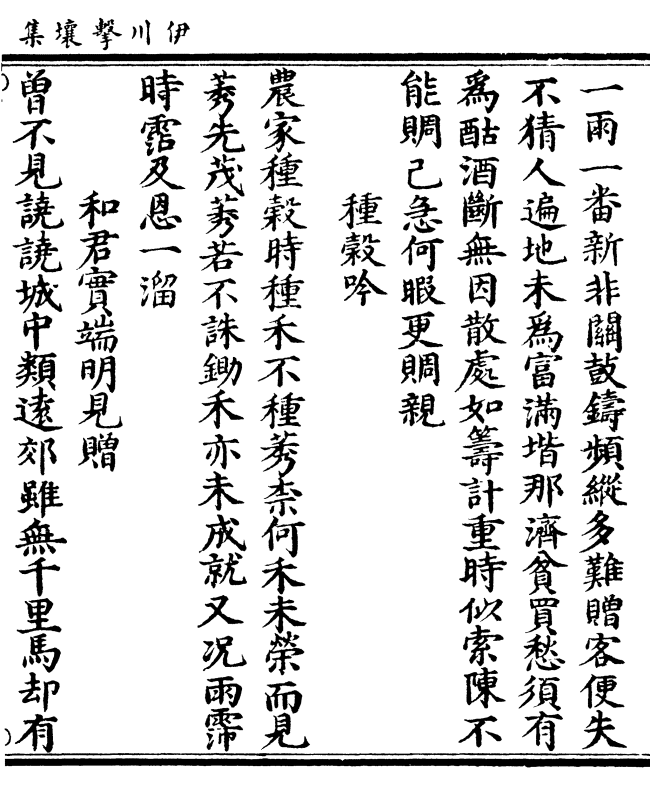 伊川擊壤集
一雨一番新非關鼓鑄頻縱多難贈客便失
不猜人遍地未爲富滿堦那濟貧買愁須有
爲酤酒斷無因散處如籌計重時似索陳不
能賙己急何暇更賙親
種穀吟
農家種穀時種禾不種莠柰何禾未榮而見
莠先茂莠若不誅鋤禾亦未成就又況雨霈
時霑及恩一溜
和君實端明見贈
曽不見譊譊城中類遠郊雖無千里馬却有